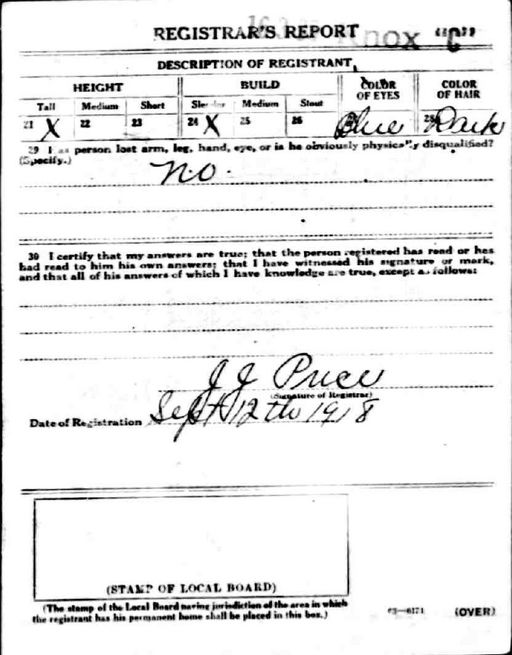 REGISTRAR'S REPORT Knox "C"
DESCRIPTION OF REGISTRANT
HEIGHT BUILD COLOR OF EYES COLOR OF HAIR
Tall Medium Short Slender Medium Stout
21 X 22 23 24 X 25 26 Blue 28 Dark
29 Has person lost arm, leg, hand, eye, or is he obviously physically disqualified?
(Specify.)
No.
30 I certify that my answers are true; that the person registered has read or has
had read to him his own answers; that I have witnessed his signature or mark,
and that all of his answers of which I have knowledge are true, except as follows:
J J Price
(Signature of Registrar)
Date of Registration Sept 12th 1918
(STAMP OF LOCAL BOARD)
(The stamp of the Local Board having jurisdiction of the area in which
the registrant has his permanent home shall be placed in this box.)
03—6171 (OVER)